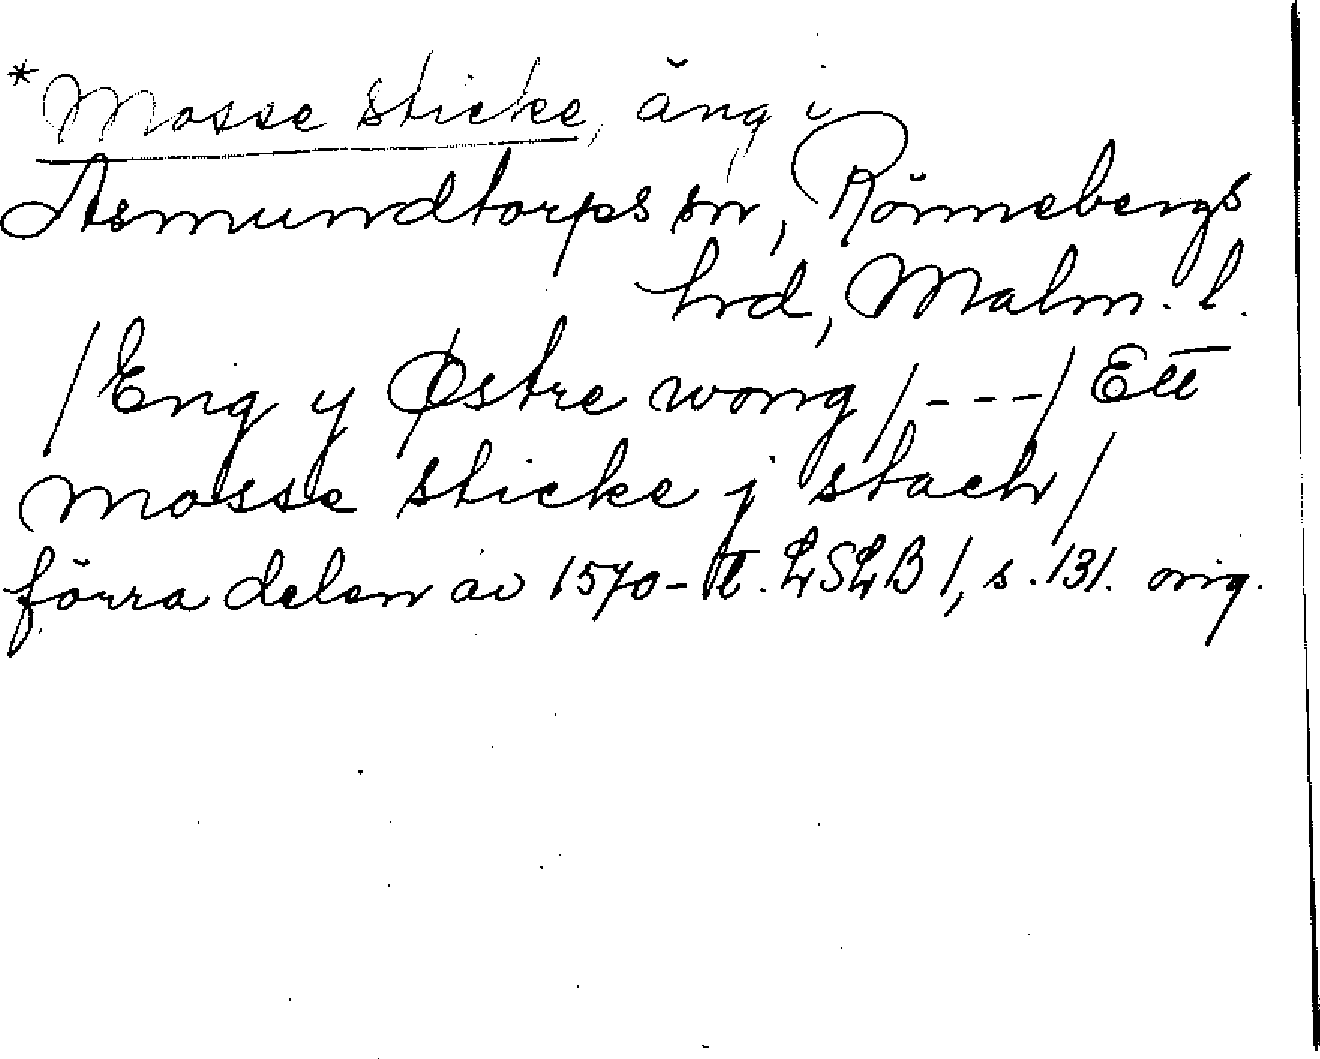 *Mosse sticke, äng i
Asmundtorps sn, Rönnebergs
hrd, Malm. l.
/Eng y Østre wong/---/Ett
mosse sticke j stach/
förra delen av 1570-t. LSLB 1, s. 131. orig.